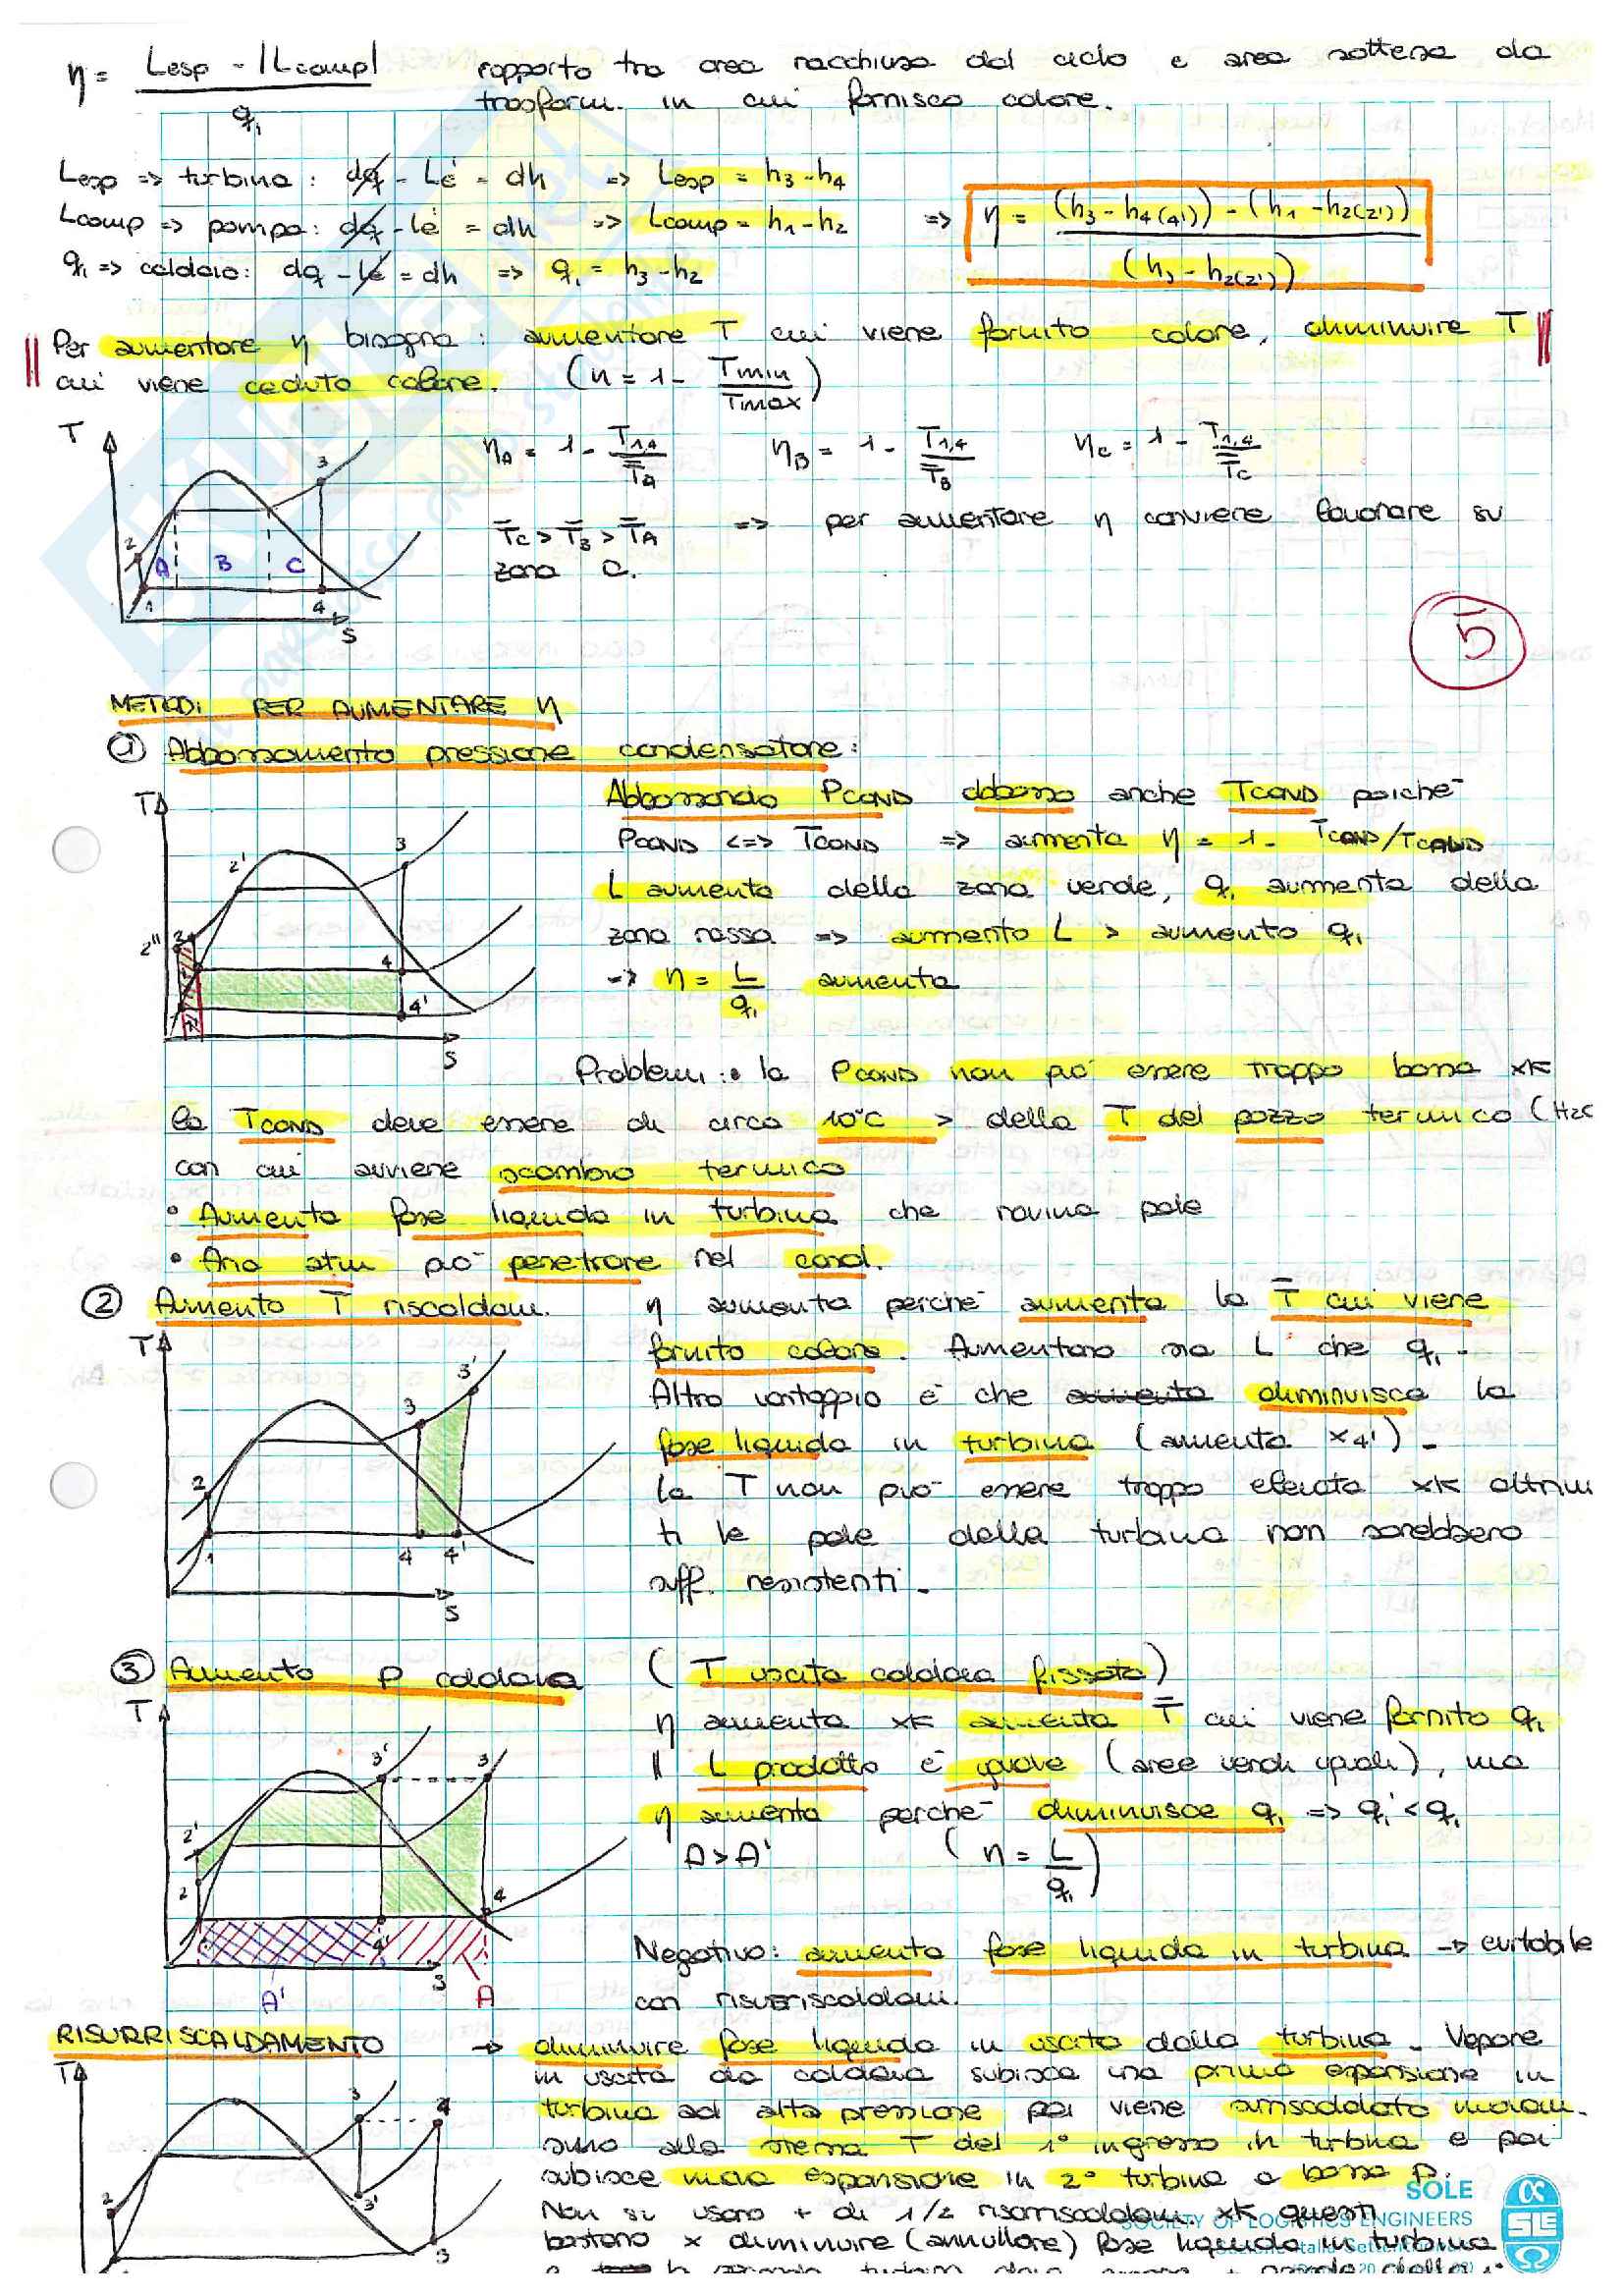 η = Lesp - |Lcomp| / q₁ rapporto tra area racchiusa dal ciclo e area sottesa da
trasform. in cui fornisco calore.
Lesp => turbina: dq - Lé = dh => Lesp = h3 - h4
Lcomp => pompa: dq - Lé = dh => Lcomp = h1 - h2 => η = (h3 - h4(4')) - (h1 - h2(2')) / (h3 - h2(2'))
q₁ => caldaia: dq - Lé = dh => q₁ = h3 - h2
Per aumentare η bisogna: aumentare T cui viene fornito calore, diminuire T
cui viene ceduto calore. (η = 1 - Tmin/Tmax)
T
ηA = 1 - T1,4/T̿A ηB = 1 - T1,4/T̿B ηC = 1 - T1,4/T̿C
T̿C > T̿B > T̿A => per aumentare η conviene lavorare su
zona C.
3
2
A B C
1 4
S
5
METODI PER AUMENTARE η
① Abbassamento pressione condensatore:
T
Abbassando PCOND abbasso anche TCOND poiché
PCOND <=> TCOND => aumenta η = 1 - TCOND/TCALD
L aumenta della zona verde, q₁ aumenta della
zona rossa => aumento L > aumento q₁
-> η = L/q₁ aumenta
3
2'
2'' 2
4
4'
S
Problemi: • la PCOND non può essere troppo bassa xK
la TCOND deve essere di circa 10°C > della T del pozzo termico (H2O
con cui avviene scambio termico
• Aumenta fase liquida in turbina che rovina pale
• Aria atm può penetrare nel cond.
② Aumento T riscaldam. η aumenta perché aumenta la T̿ cui viene
fornito calore. Aumentano sia L che q₁.
Altro vantaggio è che aumenta diminuisce la
fase liquida in turbina (aumenta x4') -
la T non può essere troppo elevata xK altrim
ti le pale della turbina non sarebbero
suff. resistenti.
T
3'
3
2
1 4 4'
S
③ Aumento P caldaia (T uscita caldaia fissata)
η aumenta xK aumenta T̿ cui viene fornito q₁
Il L prodotto è uguale (aree verdi uguali), ma
η aumenta perché diminuisce q₁ => q₁' < q₁
A > A' (η = L/q₁)
Negativo: aumenta fase liquida in turbina -> evitabile
con risurriscaldam.
T
3' 3
2'
2
4
4'
S
A' A
RISURRISCALDAMENTO -> diminuire fase liquida in uscita dalla turbina. Vapore
in uscita da caldaia subisce una prima espansione in
turbina ad alta pressione poi viene surriscaldato nuovam.
sino alla stessa T del 1° ingresso in turbina e poi
subisce nuova espansione in 2° turbina a bassa P.
Non si usano + di 1/2 risurriscaldam. xK questi
bastano x diminuire (annullare) fase liquida in turbina
T
3 4
2
3'
SOLE
SOCIETY OF LOGISTICS ENGINEERS